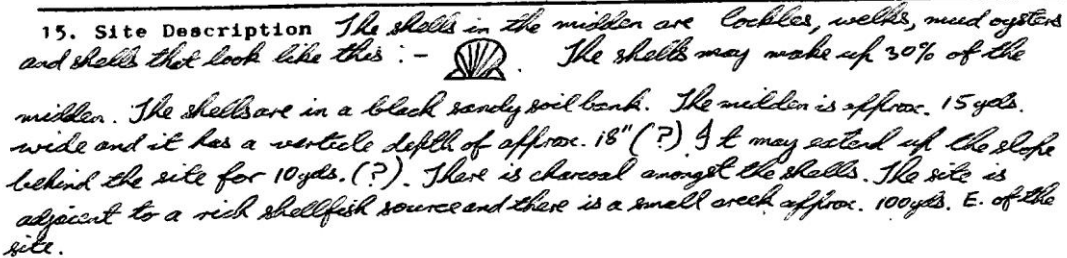 15. Site Description The shells in the midden are lockles, welks, mud oysters
and shells that look like this :- . The shells may make up 30% of the
midden. The shells are in a black sandy soil bank. The midden is approx. 15 yds.
wide and it has a verticle depth of approx. 18" (?) It may extend up the slope
behind the site for 10 yds. (?). There is charcoal amongst the shells. The site is
adjacent to a rich shellfish source and there is a small creek approx. 100 yds. E. of the
site.